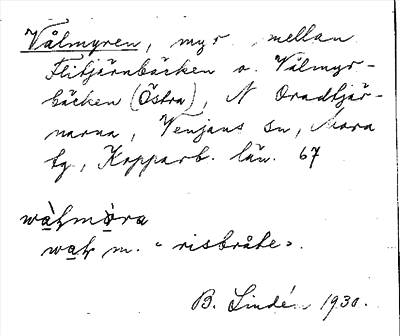 Vålmyren, myr mellan
Flitjärnbäcken o. Vålmyr-
bäcken (Östra), N Oradtjär-
narna, Venjans sn, Mora
tg, Kopparb. län. 67
m. "risbråte".
B. Lindén 1930.